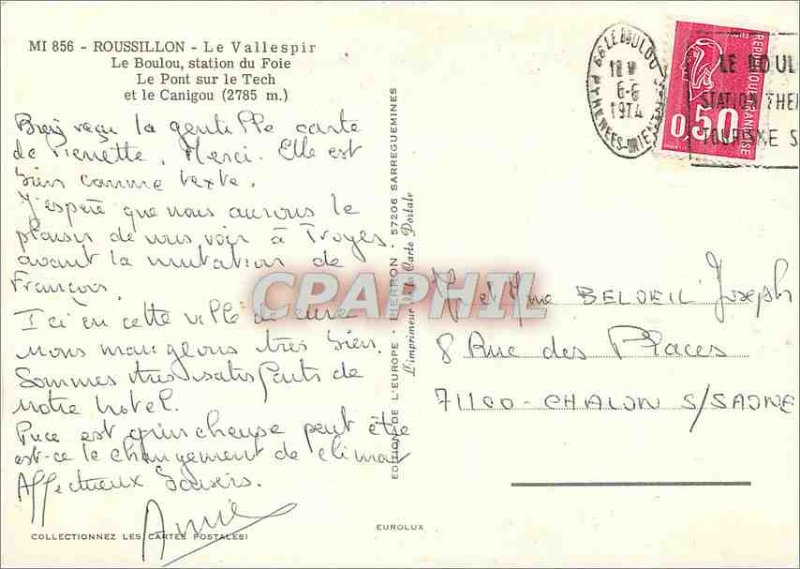 MI 856 - ROUSSILLON - Le Vallespir
Le Boulou, station du Foie
Le Pont sur le Tech
et le Canigou (2785 m.)
Bien reçu la gentille carte
de Pierrette, Merci. Elle est
bien comme texte.
J'espère que nous aurons le
plaisir de vous voir à Troyes
avant la mutation de
François.
Ici en cette ville de cure
nous mangeons très bien.
Sommes très satisfaits de
notre hotel.
Puce est grincheuse peut être
est-ce le changement de climat
Affectueux Baisers.
Annie
COLLECTIONNEZ LES CARTES POSTALES!
EDITIONS DE L'EUROPE - PIERRON - 57206 SARREGUEMINES
L'imprimeur de la Carte Postale
EUROLUX
CPAPHIL
66 LE BOULOU
18 H
6-6
1974
PYRENEES-ORIENT
REPUBLIQUE FRANCAISE
0,50
LE BOUL
STATION THER
TOURISME S
et Mme BELOEIL Joseph
8 Rue des Places
71100 - CHALON S/SAONE